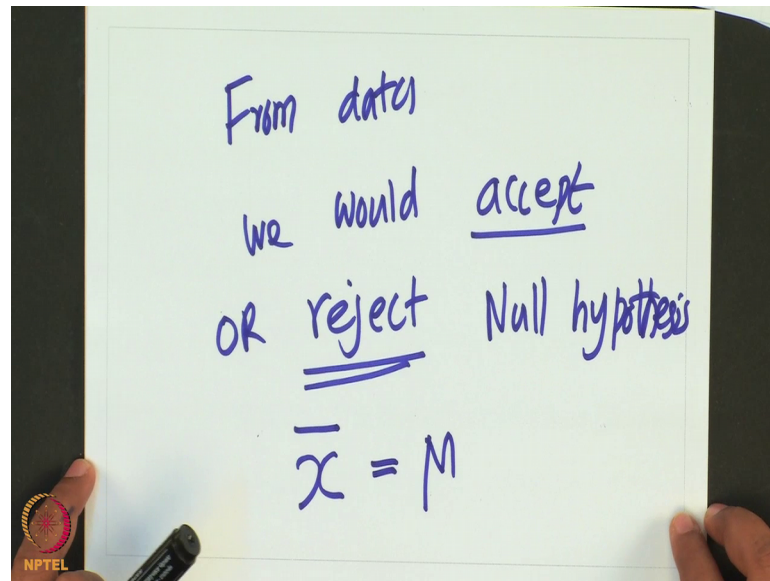 From data
we would accept
OR reject Null hypothesis
x̅ = μ
NPTEL